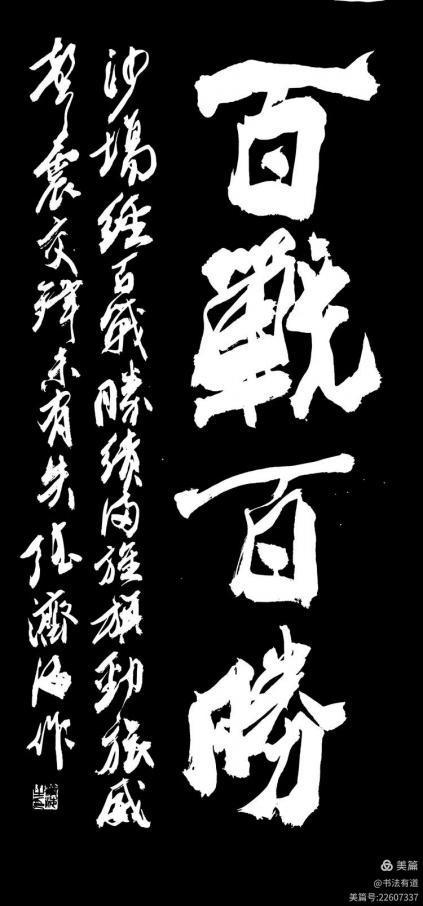 百戰百勝
沙場經百戰勝績滿旌旗勁旅威
聲震交鋒未有失張濟海作
美篇
@书法有道
美篇号:22607337